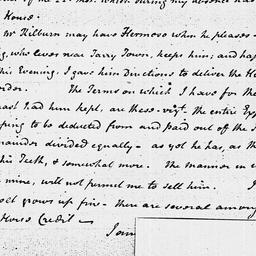 of the 22d Inst. which during my absence had
House.
Mr Kilburn may have Hermoso when he pleases -
who lives near Tarry Town, keeps him; and hap
this Evening. I gave him Directions to deliver the H
order. The Terms on which I have for the
last had him kept, are these - vizt. the entire Exp
ping to be deducted from and paid out of the s
mainder divided equally - as yet he has, as th
his Teeth, & somewhat more. The manner in w
mine, will not permit me to sell him. I
colt grows up fine - there are several among
Horse Credit -
I am